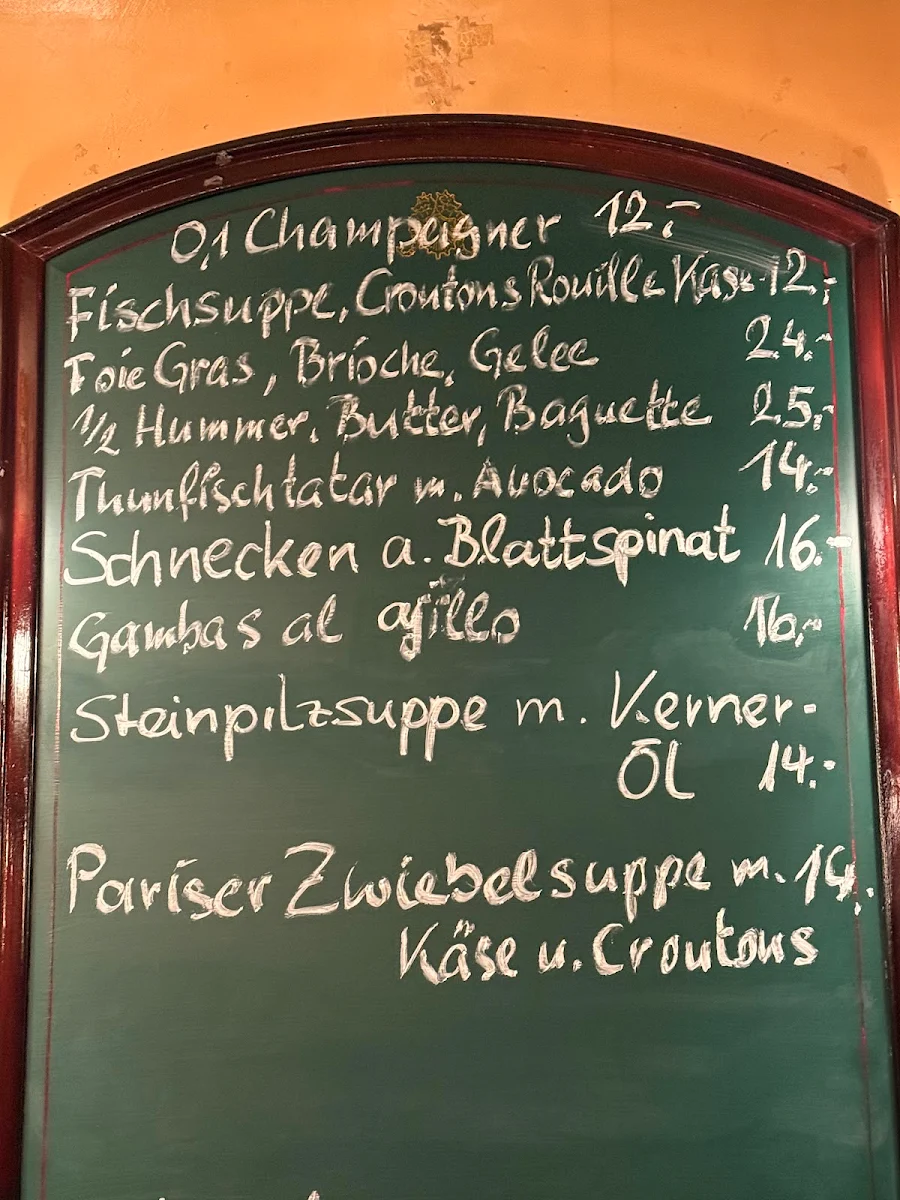 0,1 Champagner 12.-
Fischsuppe, Croutons Rouille Käse 12,-
Foie Gras, Brioche, Gelee 24.-
1/2 Hummer, Butter, Baguette 25,-
Thunfischtatar m. Avocado 14.-
Schnecken a. Blattspinat 16.-
Gambas al ajillo 16,-
Steinpilzsuppe m. Kerner-
Öl 14.-
Pariser Zwiebelsuppe m. 14.
Käse u. Croutons